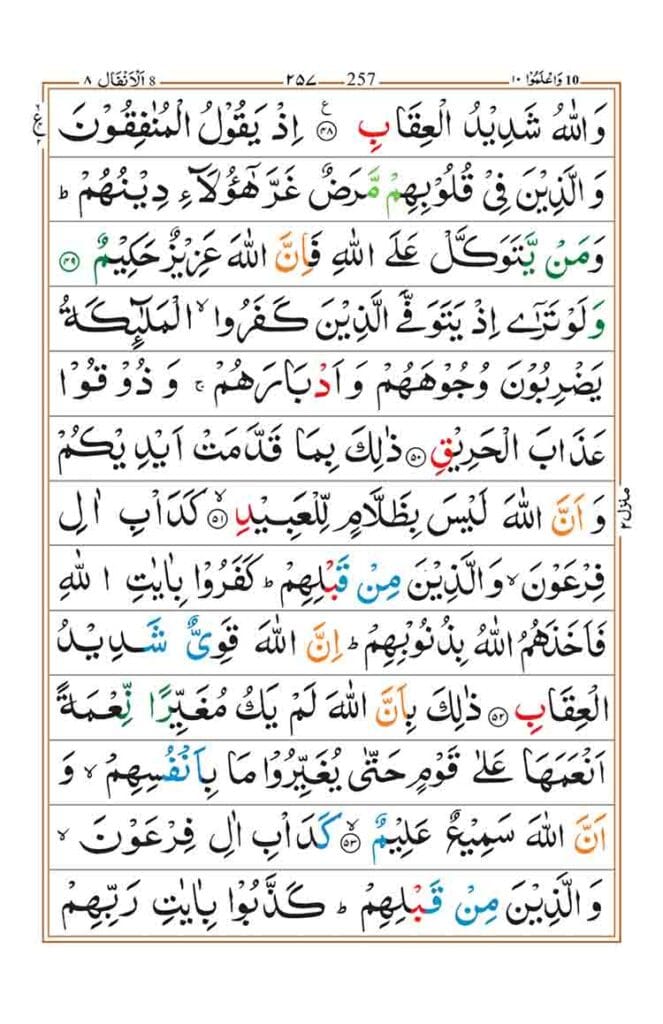 10 وَاعْلَمُوْۤا ١٠ 257 ٢٥٧ 8 اَلْاَنْفَال ٨
وَاللّٰهُ شَدِيْدُ الْعِقَابِ ۟ع ﴿٤٨﴾ اِذْ يَقُوْلُ الْمُنٰفِقُوْنَ
وَالَّذِيْنَ فِيْ قُلُوْبِهِمْ مَّرَضٌ غَرَّ هٰٓؤُلَآءِ دِيْنُهُمْ ؕ
وَمَنْ يَّتَوَكَّلْ عَلَى اللّٰهِ فَاِنَّ اللّٰهَ عَزِيْزٌ حَكِيْمٌ ﴿٤٩﴾
وَلَوْ تَرٰٓى اِذْ يَتَوَفَّى الَّذِيْنَ كَفَرُوا ۙ الْمَلٰٓئِكَةُ
يَضْرِبُوْنَ وُجُوْهَهُمْ وَاَدْبَارَهُمْ ۚ وَذُوْقُوْا
عَذَابَ الْحَرِيْقِ ﴿٥٠﴾ ذٰلِكَ بِمَا قَدَّمَتْ اَيْدِيْكُمْ
وَاَنَّ اللّٰهَ لَيْسَ بِظَلَّامٍ لِّلْعَبِيْدِ ۙ﴿٥١﴾ كَدَاْبِ اٰلِ
فِرْعَوْنَ ۙ وَالَّذِيْنَ مِنْ قَبْلِهِمْ ؕ كَفَرُوْا بِاٰيٰتِ اللّٰهِ
فَاَخَذَهُمُ اللّٰهُ بِذُنُوْبِهِمْ ؕ اِنَّ اللّٰهَ قَوِيٌّ شَدِيْدُ
الْعِقَابِ ﴿٥٢﴾ ذٰلِكَ بِاَنَّ اللّٰهَ لَمْ يَكُ مُغَيِّرًا نِّعْمَةً
اَنْعَمَهَا عَلٰى قَوْمٍ حَتّٰى يُغَيِّرُوْا مَا بِاَنْفُسِهِمْ ۙ وَ
اَنَّ اللّٰهَ سَمِيْعٌ عَلِيْمٌ ۙ﴿٥٣﴾ كَدَاْبِ اٰلِ فِرْعَوْنَ ۙ
وَالَّذِيْنَ مِنْ قَبْلِهِمْ ؕ كَذَّبُوْا بِاٰيٰتِ رَبِّهِمْ
منزل ٢